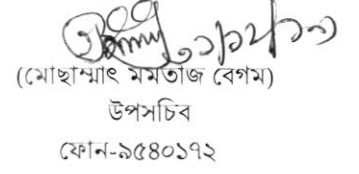 (মোছাম্মাৎ মমতাজ বেগম)
উপসচিব
ফোন-৯৫৪০১৭২